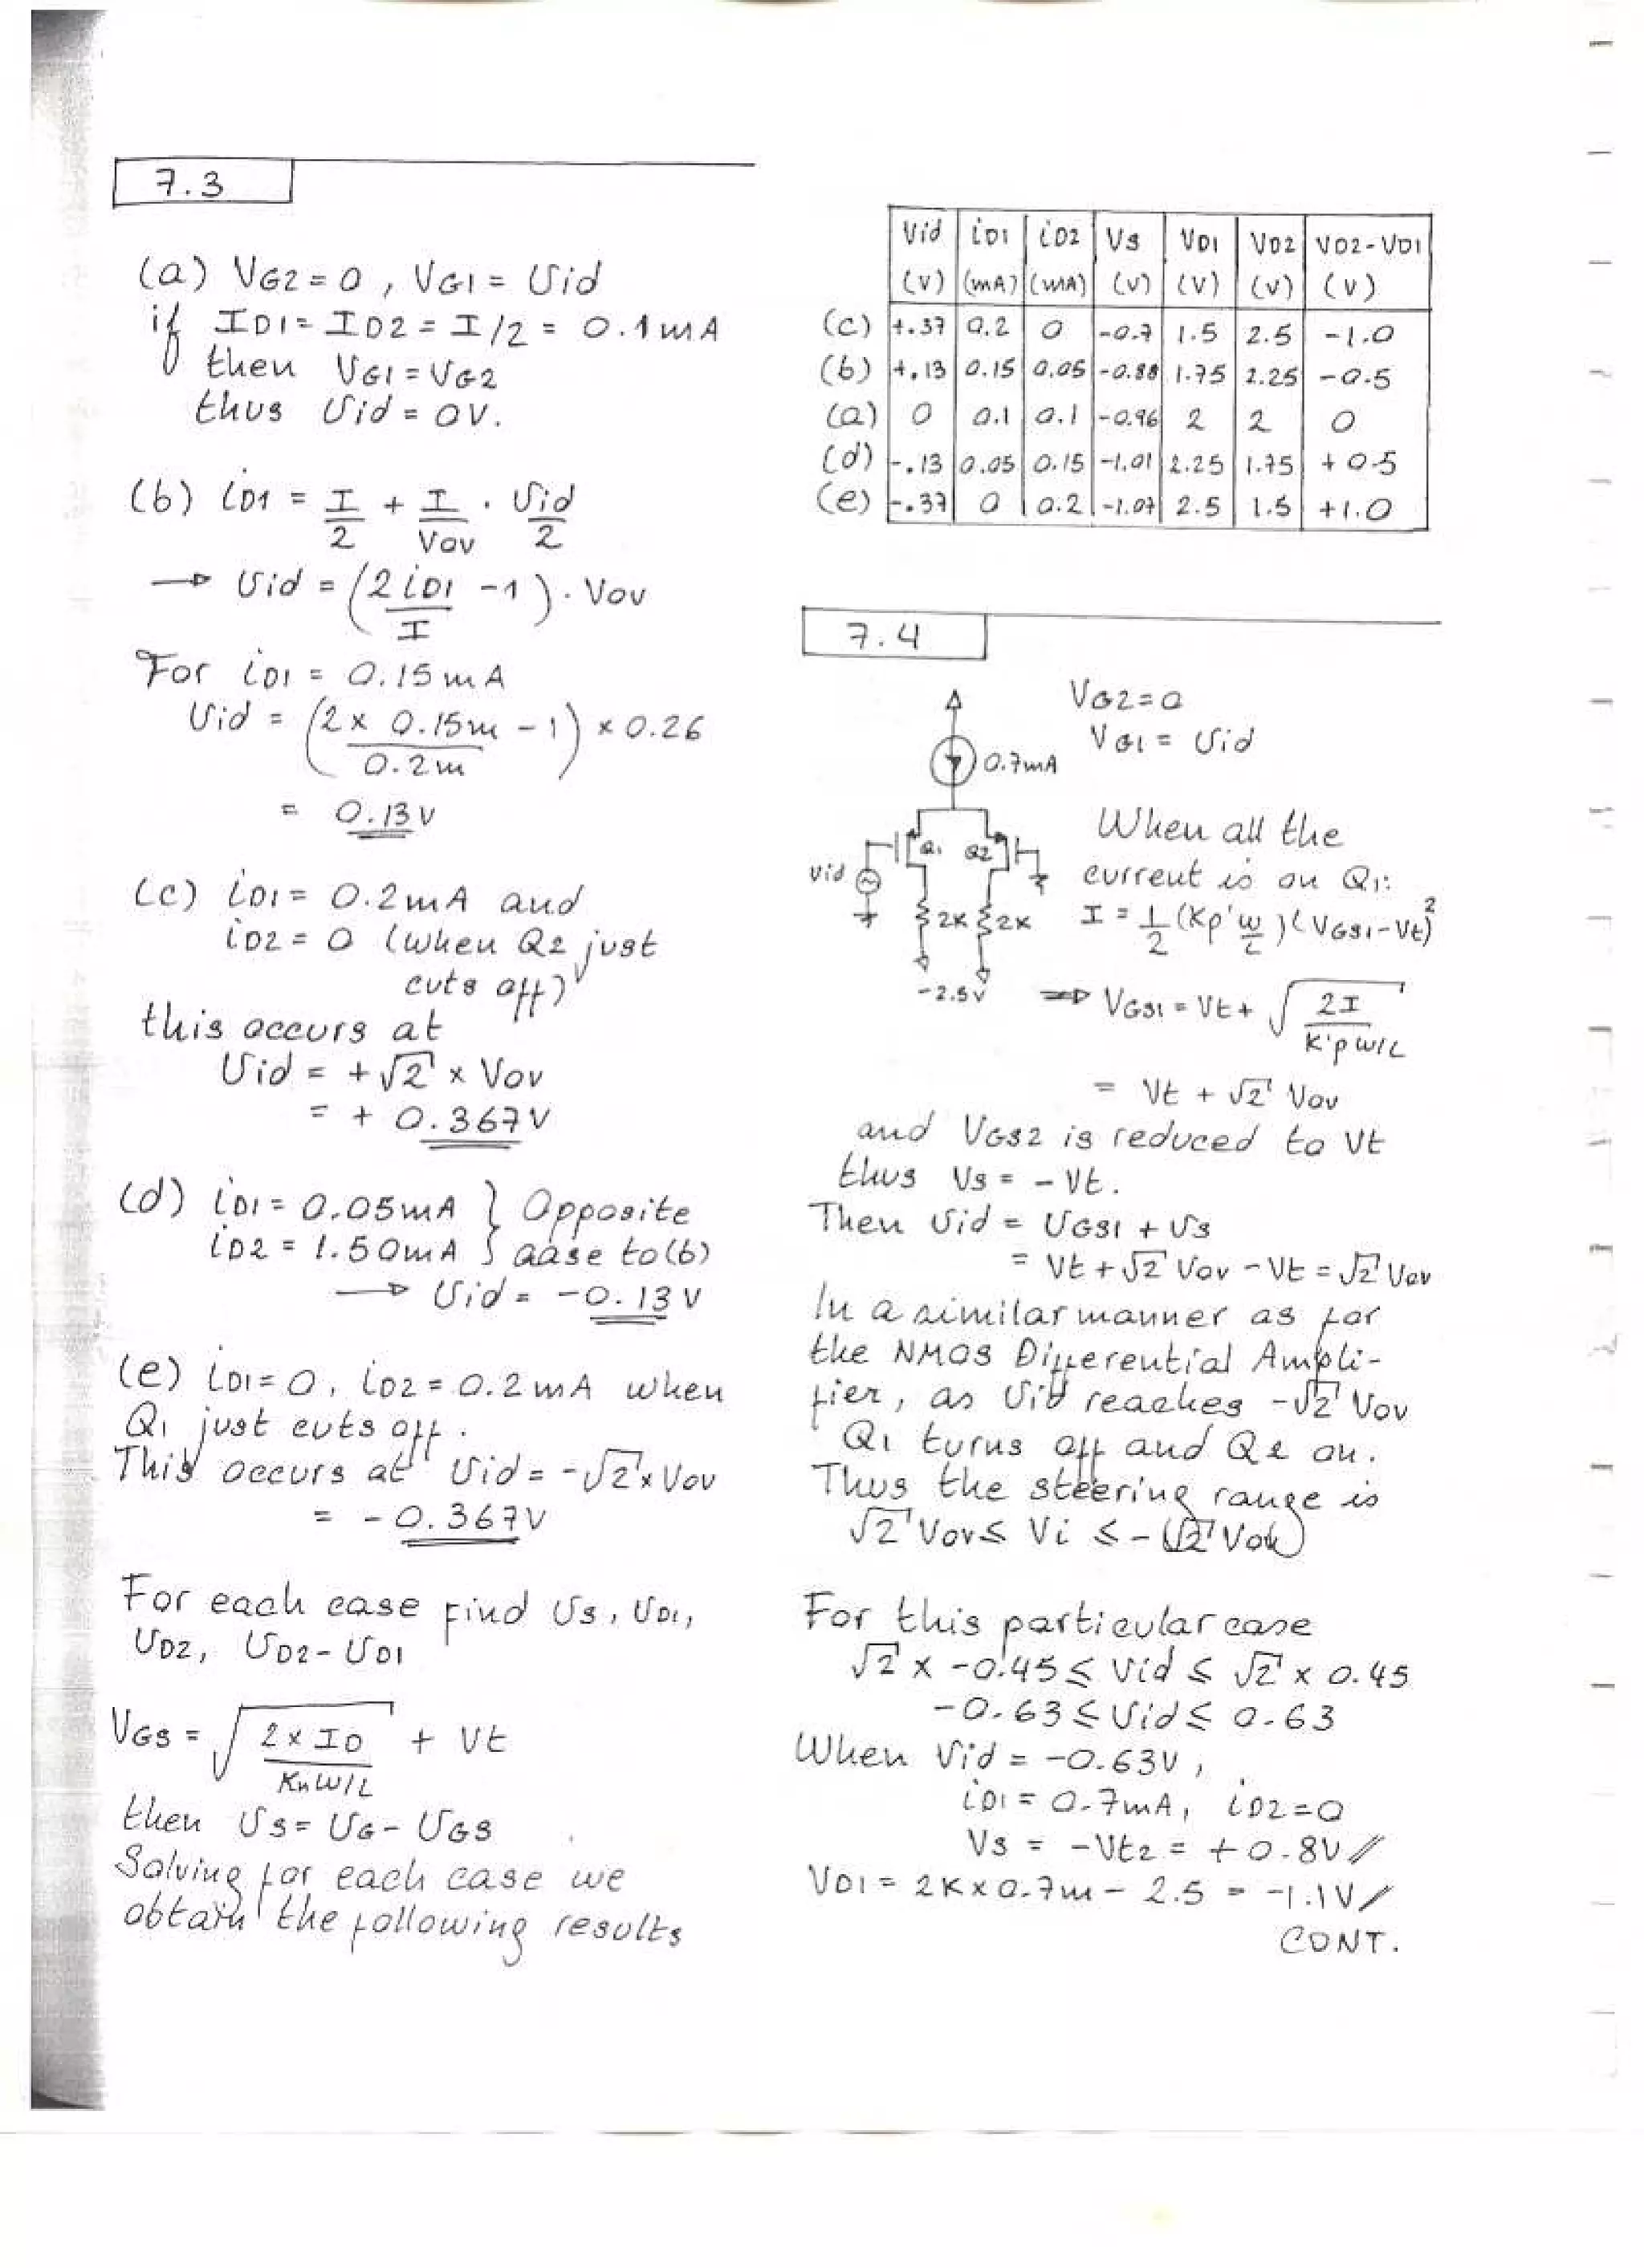 7.3
(a) VG2 = 0 , VG1 = Vid
if ID1 = ID2 = I/2 = 0.1mA
then VG1 = VG2
thus Vid = 0V.
(b) iD1 = I/2 + I/Vov · Vid/2
→ Vid = (2iD1/I - 1) · Vov
For iD1 = 0.15mA
Vid = (2 x 0.15m/0.2m - 1) x 0.26
= 0.13V
(c) iD1 = 0.2mA and
iD2 = 0 (when Q2 just
cuts off)
this occurs at
Vid = +√2 x Vov
= + 0.367V
(d) iD1 = 0.05mA } Opposite
iD2 = 1.50mA } aase to (b)
→ Vid = -0.13V
(e) iD1 = 0, iD2 = 0.2mA when
Q1 just cuts off.
This occurs at Vid = -√2 x Vov
= -0.367V
For each case find Vs, VD1,
VD2, VD2-VD1
VGS = √(2 x ID/KnW/L) + Vt
then Vs = VG - VGS
Solving for each case we
obtain the following results
Vid iD1 iD2 Vs VD1 VD2 VD2-VD1
(V) (mA) (mA) (V) (V) (V) (V)
(c) +.37 0.2 0 -0.7 1.5 2.5 -1.0
(b) +.13 0.15 0.05 -0.88 1.75 2.25 -0.5
(a) 0 0.1 0.1 -0.96 2 2 0
(d) -.13 0.05 0.15 -1.01 2.25 1.75 +0.5
(e) -.37 0 0.2 -1.07 2.5 1.5 +1.0
7.4
VG2 = 0
VG1 = Vid
0.7mA
Q1 Q2
Vid
2K 2K
-2.5V
When all the
current is on Q1:
I = 1/2 (Kp' W/L)(VGS1 - Vt)²
⇒ VGS1 = Vt + √(2I/K'p W/L)
= Vt + √2 Vov
and VGS2 is reduced to Vt
thus Vs = -Vt.
Then Vid = VGS1 + Vs
= Vt + √2 Vov - Vt = √2 Vov
In a similar manner as for
the NMOS Differential Ampli-
fier, as Vid reaches -√2 Vov
Q1 turns off and Q2 on.
Thus the steering range is
√2 Vov ≤ Vi ≤ -√2 Vov
For this particular case
√2 x -0.45 ≤ Vid ≤ √2 x 0.45
-0.63 ≤ Vid ≤ 0.63
When Vid = -0.63V,
iD1 = 0.7mA, iD2 = 0
Vs = -Vt2 = +0.8V //
VD1 = 2K x 0.7m - 2.5 = -1.1V //
CONT.